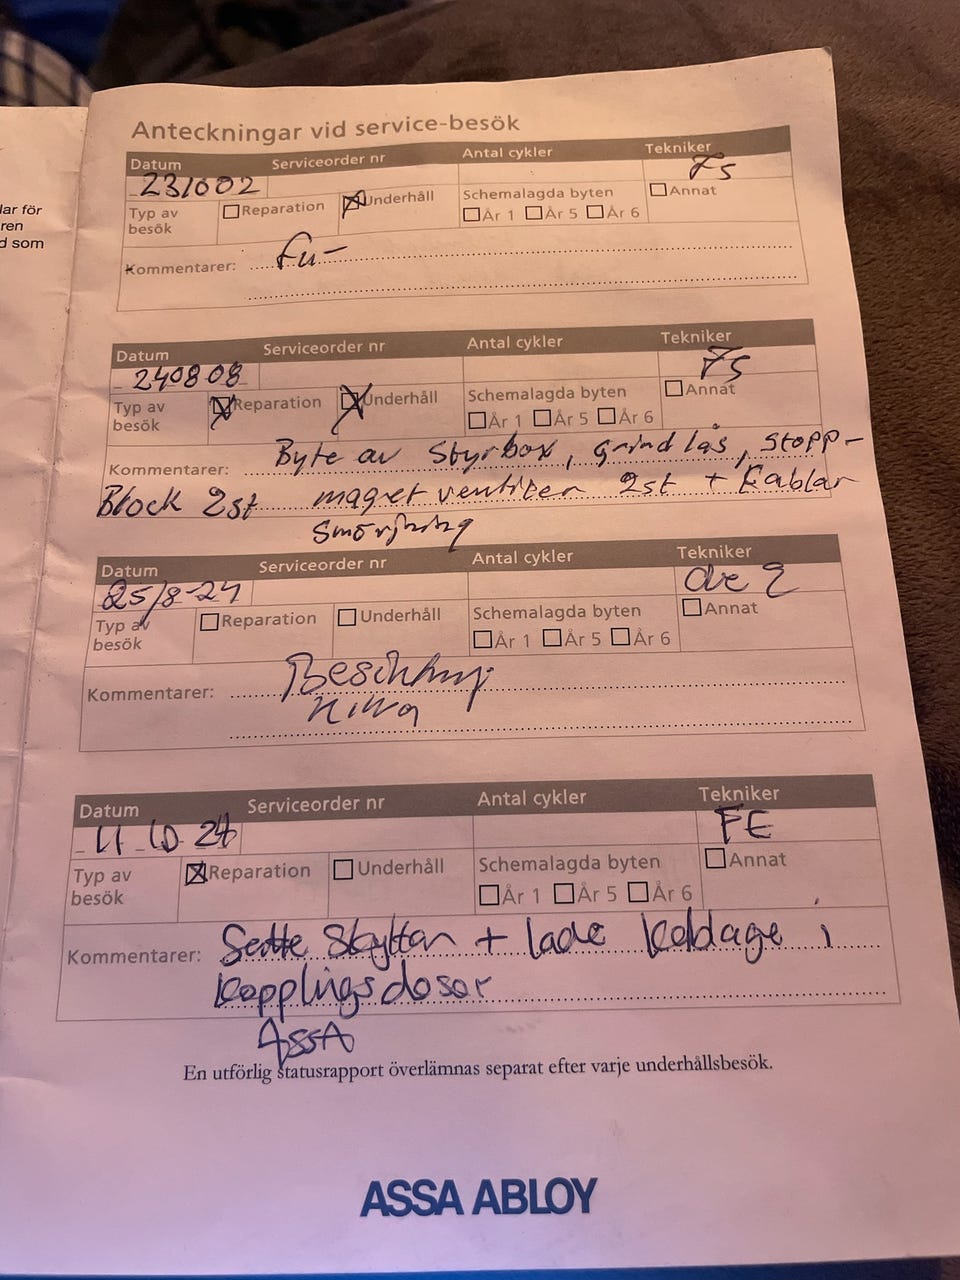 lar för
ren
d som
Anteckningar vid service-besök
Datum Serviceorder nr Antal cykler Tekniker
231002 FS
Typ av besök Reparation Underhåll Schemalagda byten År 1 År 5 År 6 Annat
Kommentarer: Fu-
Datum Serviceorder nr Antal cykler Tekniker
240808 FS
Typ av besök Reparation Underhåll Schemalagda byten År 1 År 5 År 6 Annat
Kommentarer: Byte av Styrbox, grindlås, stopp-
Block 2st magnetventiler 2st + Kablar
Smörjning
Datum Serviceorder nr Antal cykler Tekniker
25/8-24
Typ av besök Reparation Underhåll Schemalagda byten År 1 År 5 År 6 Annat
Kommentarer:
Datum Serviceorder nr Antal cykler Tekniker
11 10 24 FE
Typ av besök Reparation Underhåll Schemalagda byten År 1 År 5 År 6 Annat
Kommentarer: Satte Skyltan + lade i
kopplingsdosor
ASSA
En utförlig statusrapport överlämnas separat efter varje underhållsbesök.
ASSA ABLOY